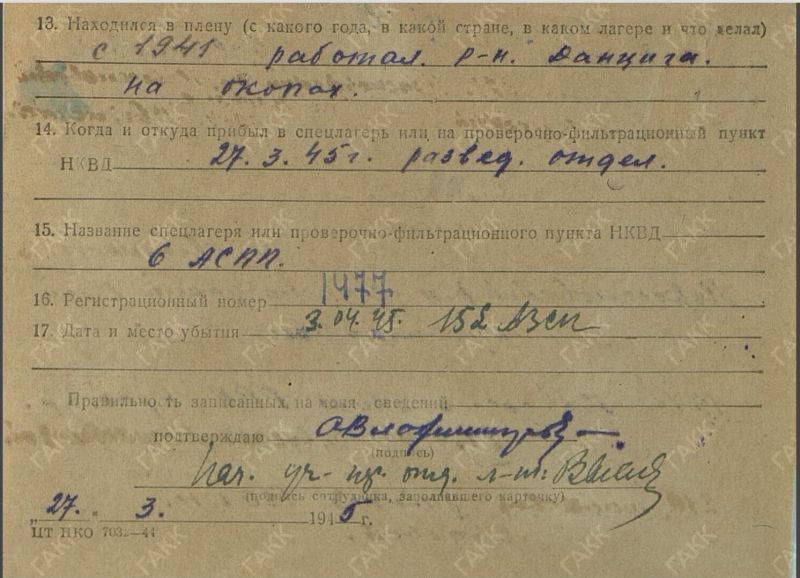 13. Находился в плену (с какого года, в какой стране, в каком лагере и что делал)
с 1941 работал р-н. Данцига.
на окопах.
14. Когда и откуда прибыл в спецлагерь или на проверочно-фильтрационный пункт
НКВД 27. 3. 45 г. развед. отдел.
15. Название спецлагеря или проверочно-фильтрационного пункта НКВД
6 АСПП.
16. Регистрационный номер 1477
17. Дата и место убытия 3. 04. 45. 152 АЗСП
Правильно ть записанных на меня сведений
подтверждаю
(подпись)
Нач. уч- отд. л-т:
(подпись сотрудника, заполнявшего карточку)
„27. “ 3. 1945 г.
ЦТ НКО 7032—44
ГАКК